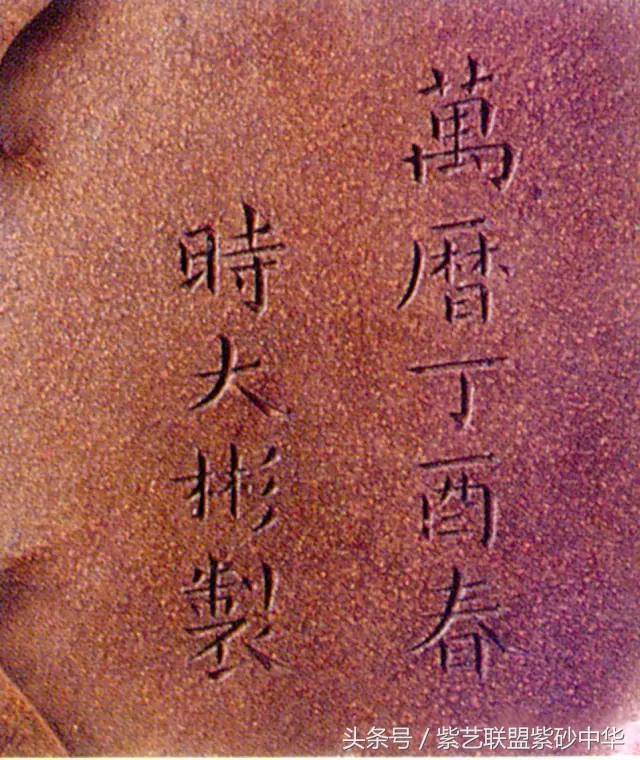 萬暦丁酉春
時大彬製
头条号/紫艺联盟紫砂中华